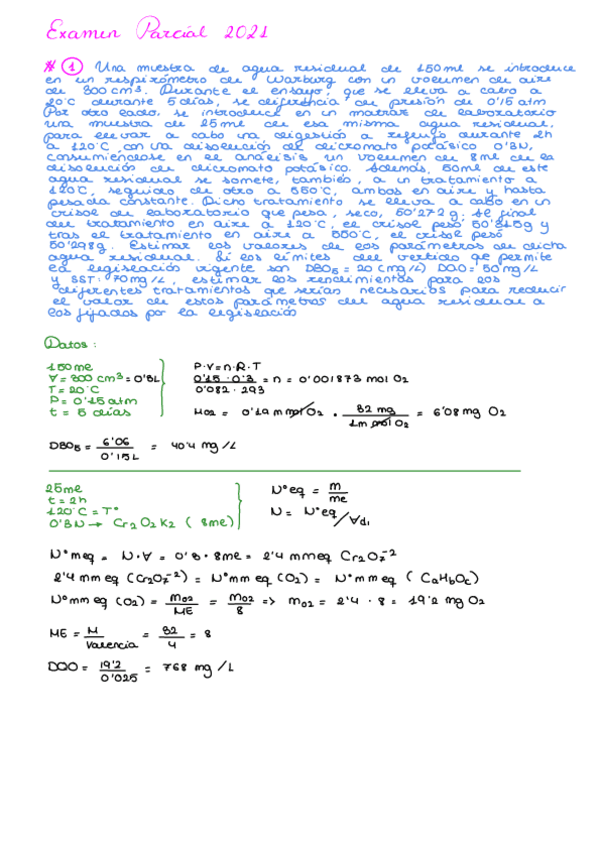 Examen Parcial 2021
* ① Una muestra de agua residual de 150ml se introduce
en un respirómetro de Warburg con un volumen de aire
de 300 cm³. Durante el ensayo, que se lleva a cabo a
20°C durante 5 días, se diferencia de presión de 0'15 atm
Por otro lado, se introduce en un matraz de laboratorio
una muestra de 25 ml de esa misma agua residual,
para llevar a cabo una digestión a reflujo durante 2h
a 120°C, con una disolución de dicromato potásico 0'3N,
consumiéndose en el análisis un volumen de 8ml de la
disolución de dicromato potásico. Además, 50ml de este
agua residual se somete, también, a un tratamiento a
120°C, seguido de otro a 550°C, ambos en aire y hasta
pesada constante. Dicho tratamiento se lleva a cabo en un
crisol de laboratorio que pesa, seco, 50'272 g. Al final
del tratamiento en aire a 120°C, el crisol pesó 50'315g y
tras el tratamiento en aire a 550°C, el crisol pesó
50'298g. Estimar los valores de los parámetros de dicta
agua residual. Si los límites del vertido que permite
la legislación vigente son DBO₅ = 20 (mg/L) DQO = 50 mg/L
y SST: 70mg/L, estimar los rendimientos para los
diferentes tratamientos que serían necesarios para reducir
el valor de estos parámetros del agua residual a
los fijados por la legislación
Datos:
150 ml
V = 300 cm³ = 0'3L
T = 20°C
P = 0'15 atm
t = 5 días
P·V = n·R·T
0'15 · 0'3 / 0'082 · 293 = n = 0'001873 mol O₂
MO2 = 0'19 m mol O₂ · 32 mg / 1m mol O₂ = 6'08 mg O₂
DBO₅ = 6'06 / 0'15L = 40'4 mg/L
25ml
t = 2h
120°C = T°
0'3N → Cr₂O₂K₂ ( 8ml)
N°eq = m / me
N = N°eq / Vdi
N°meq = N·V = 0'3 · 8ml = 2'4 mmeq Cr₂O₇⁻²
2'4 mmeq (Cr₂O₇⁻²) = N°mmeq (O₂) = N°mmeq ( CaHbOc)
N°mmeq (O₂) = mO2 / ME = mO2 / 8 => mO2 = 2'4 · 8 = 19'2 mg O₂
ME = M / Valencia = 32 / 4 = 8
DQO = 19'2 / 0'025 = 768 mg/L